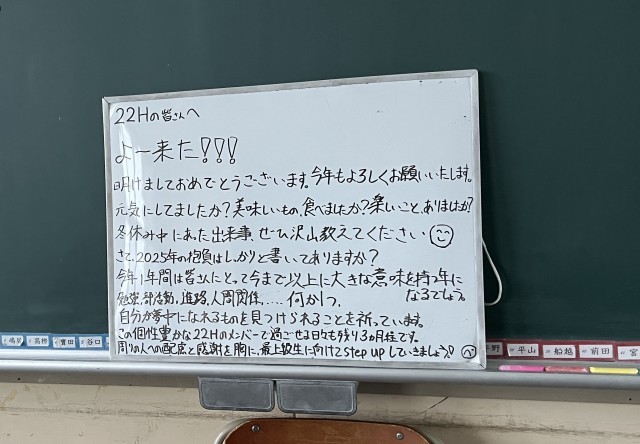 22Hの皆さんへ
よー来た!!!
明けましておめでとうございます。今年もよろしくお願いいたします。
元気にしてましたか?美味しいもの、食べましたか?楽しいこと、ありましたか?
冬休み中にあった出来事、ぜひ沢山教えてください
さて、2025年の抱負はしっかりと書いてありますか?
今年1年間は皆さんにとって今まで以上に大きな意味を持つ年に
なるでしょう。
勉強、部活動、進路、人間関係、.... 何か1つ、
自分が夢中になれるものを見つけられることを祈っています。
この個性豊かな22Hのメンバーで過ごせる日も残り3ヵ月程です。
周りの人への配慮と感謝を胸に、最上級生に向けてstep upしていきましょう!
高橋
富田
谷口
平山
船越
前田
宮